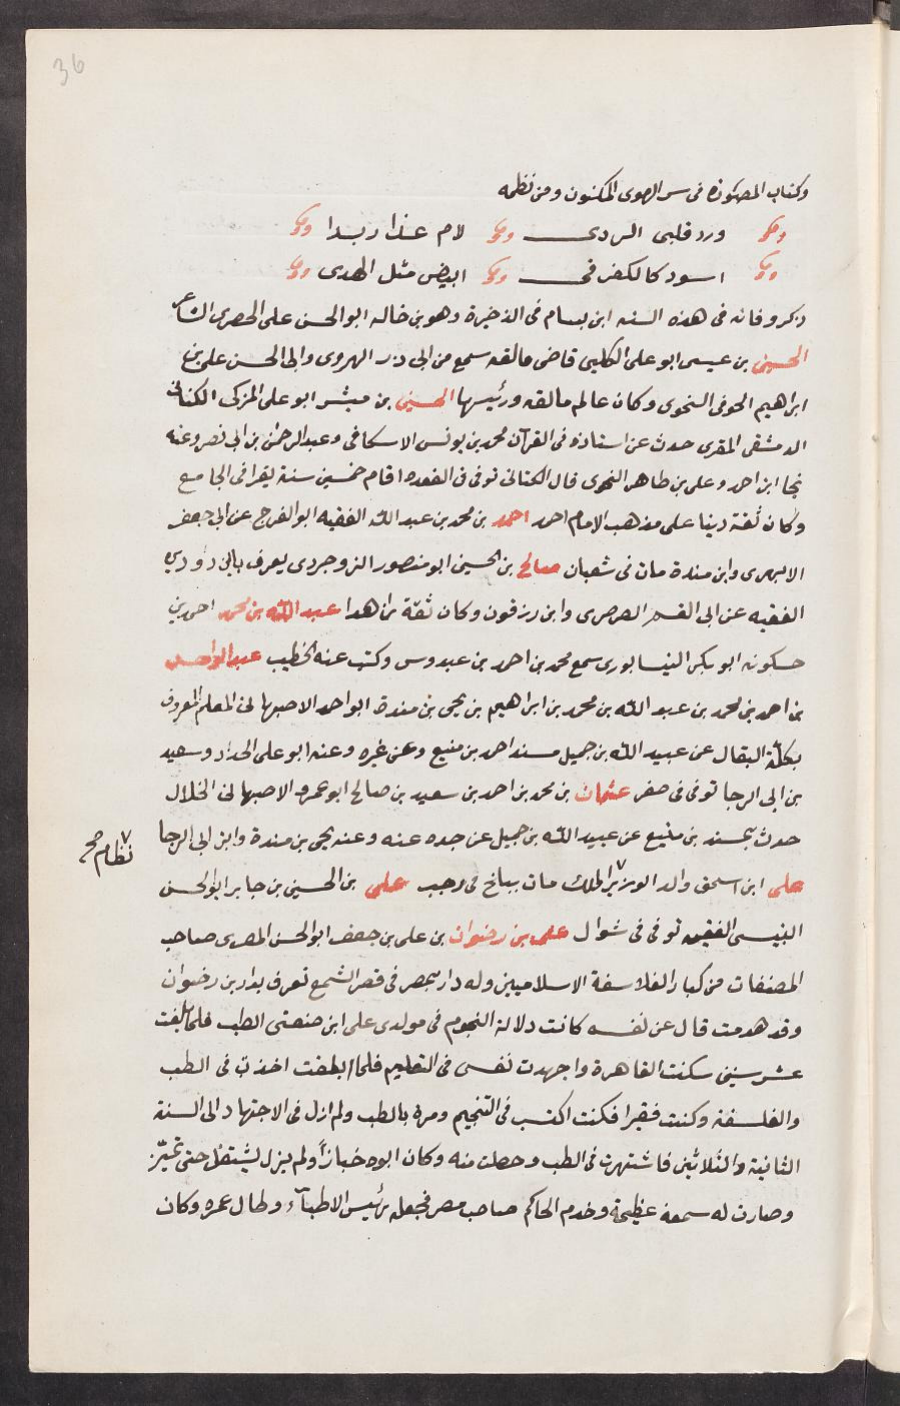 36
وكتاب المصون في سر الهوى المكنون ومن نظمه
ورد قلبي الردى لام عذار بدا
اسود كالكفر في ابيض مثل الهدى
ذكر وفاته في هذه السنه ابن بسام في الذخيرة وهو بن خالة ابو الحسن على الحصرى الشاعر
الحسين بن عيسى ابو على الكلبى قاضى مالقه سمع من ابى ذر الهروى وابى الحسن على بن
ابراهيم الحوفى النحوى وكان عالم مالقه ورئيسها الحسين بن مبشر ابو على المزكى الكتانى
الدمشقى المقرى حدث عن استاذه فى القرآن محمد بن يونس الاسكافى وعبد الرحمن بن ابى نصر وعنه
نجا ابن احمد وعلى بن طاهر النحوى قال الكتانى توفى فى القعده اقام خمسين سنة يقرا فى الجامع
وكان ثقة دينا على مذهب الامام احمد احمد بن محمد بن عبد الله الفقيه ابو الفرج عن ابى جعفر
الابهرى وابن مندة مات فى شعبان صالح بن الحسين ابو منصور البزوجردى يعرف بابن دؤدين
الفقيه عن ابى القسم الصرصرى وابن رزقون وكان ثقة زاهدا عبد الله بن محمد احمد بن
حسكونه ابو بكر النيسابورى سمع محمد بن احمد بن عبدوس وكتب عنه الخطيب عبد الواحد
بن احمد بن محمد بن عبد الله بن محمد بن ابراهيم بن يحى بن مندة ابو احمد الاصبهانى المعلم المعروف
بكلة البقال عن عبيد الله بن جميل مسند احمد بن منيع وعن غيره وعنه ابو على الحداد وسعيد
بن ابى الرجا توفى فى صفر عثمان بن محمد بن احمد بن سعيد بن صالح ابو عمرو الاصبهانى الخلال
حدث بمسند بن منيع عن عبيد الله بن جميل عن جده عنه وعنه يحى بن مندة وابن ابى الرجا
على ابن اسحق والد الوزير الملك مات ببلخ فى رجب على بن الحسين بن جابر ابو الحسن
نظام صح
التنيسى الفقيه توفى فى شوال على بن رضوان بن على بن جعفر ابو الحسن المصرى صاحب
المصنفات من كبار الفلاسفة الاسلاميين وله دار بمصر فى قصر الشمع تعرف بدار بن رضوان
وقد هدمت قال عن نفسه كانت دلالة النجوم فى مولدى على ان صنعتى الطب فلما بلغت
عشر سنين سكنت القاهرة واجهدت نفسى فى التعليم فلما بلغت اخذت فى الطب
والفلسفة وكنت فقيرا فكنت اكتسب فى التنجيم ومرة بالطب ولم ازل فى الاجتهاد الى السنة
الثانية والثلاثين فاشتهرت فى الطب وحصلت منه وكان ابوه خبازاً ولم يزل يشتغل حتى تميّز
وصارت له سمعة عظيمة وخدم الحاكم صاحب مصر فجعله رئيس الاطبآء وطال عمره وكان